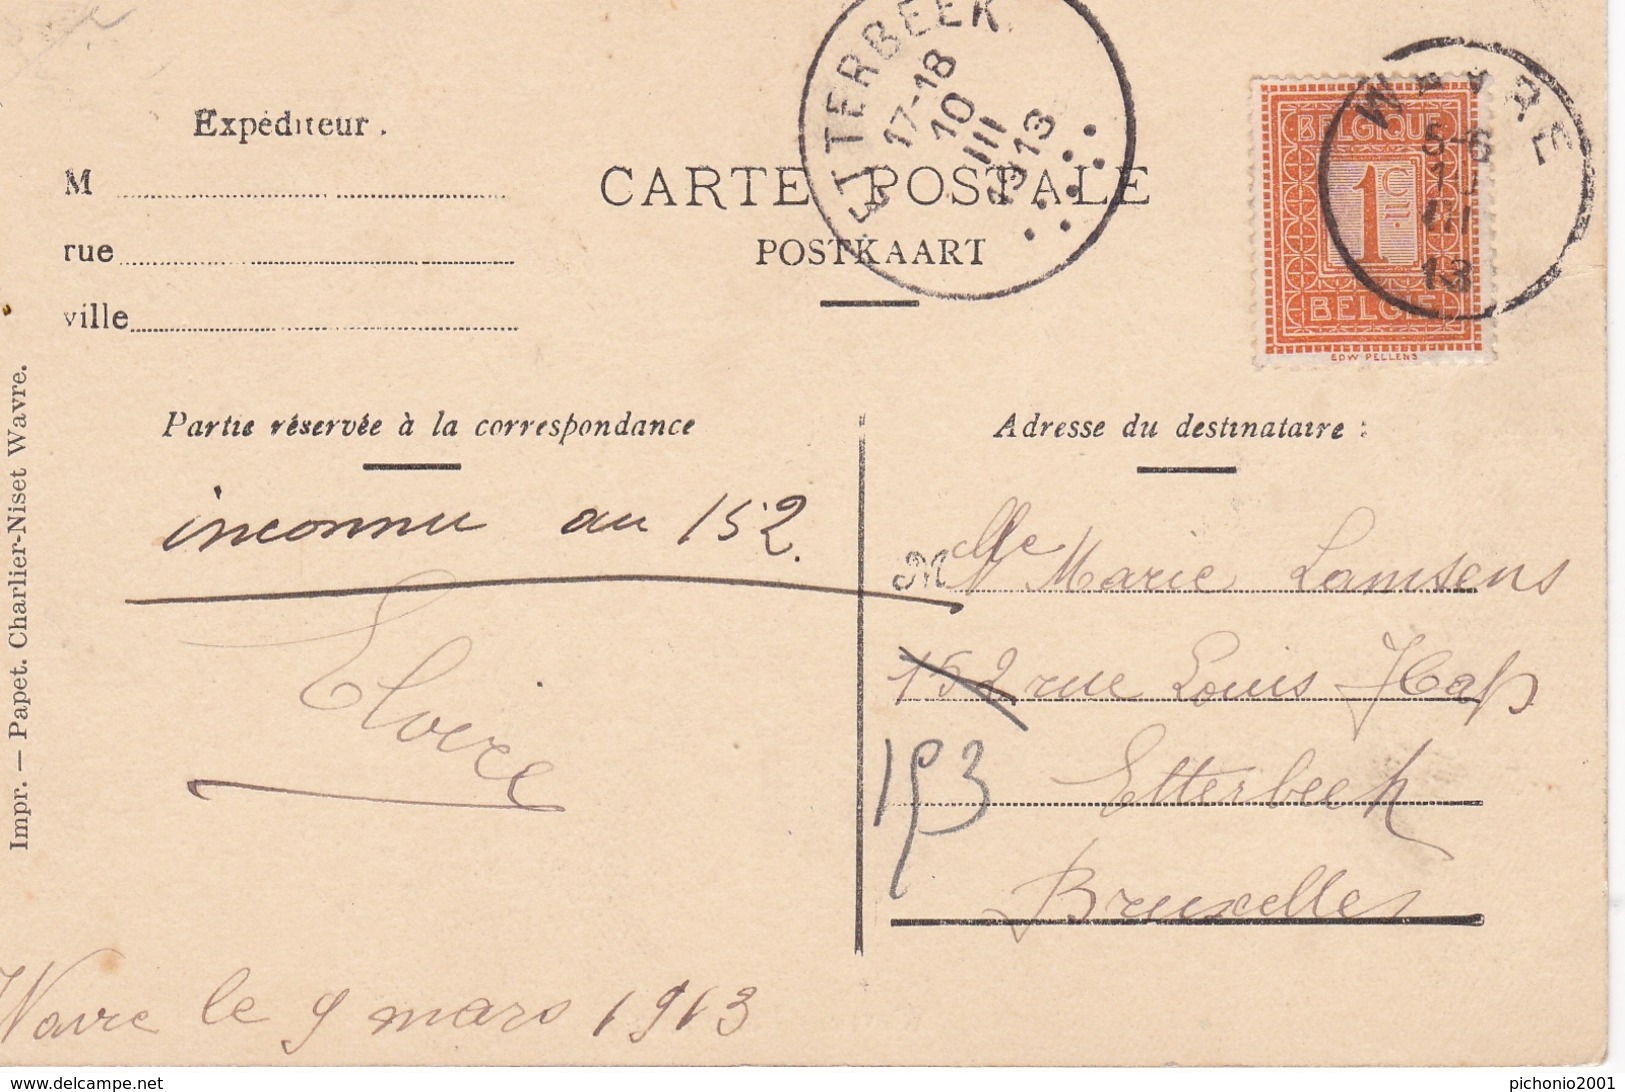 ETTERBEEK
17-18
10
III
1913
WAVRE
5-6
III
13
Expéditeur.
M
rue
ville
CARTE POSTALE
POSTKAART
BELGIQUE
1 C
BELGIË
EDW PELLENS
Impr. — Papet. Charlier-Niset Wavre.
Partie réservée à la correspondance
Adresse du destinataire :
inconnu au 152.
M
Mlle Marie Lamsens
152 rue Louis Hap
153
Etterbeek
Bruxelles
Wavre le 9 mars 1913
delcampe.net
pichonio2001